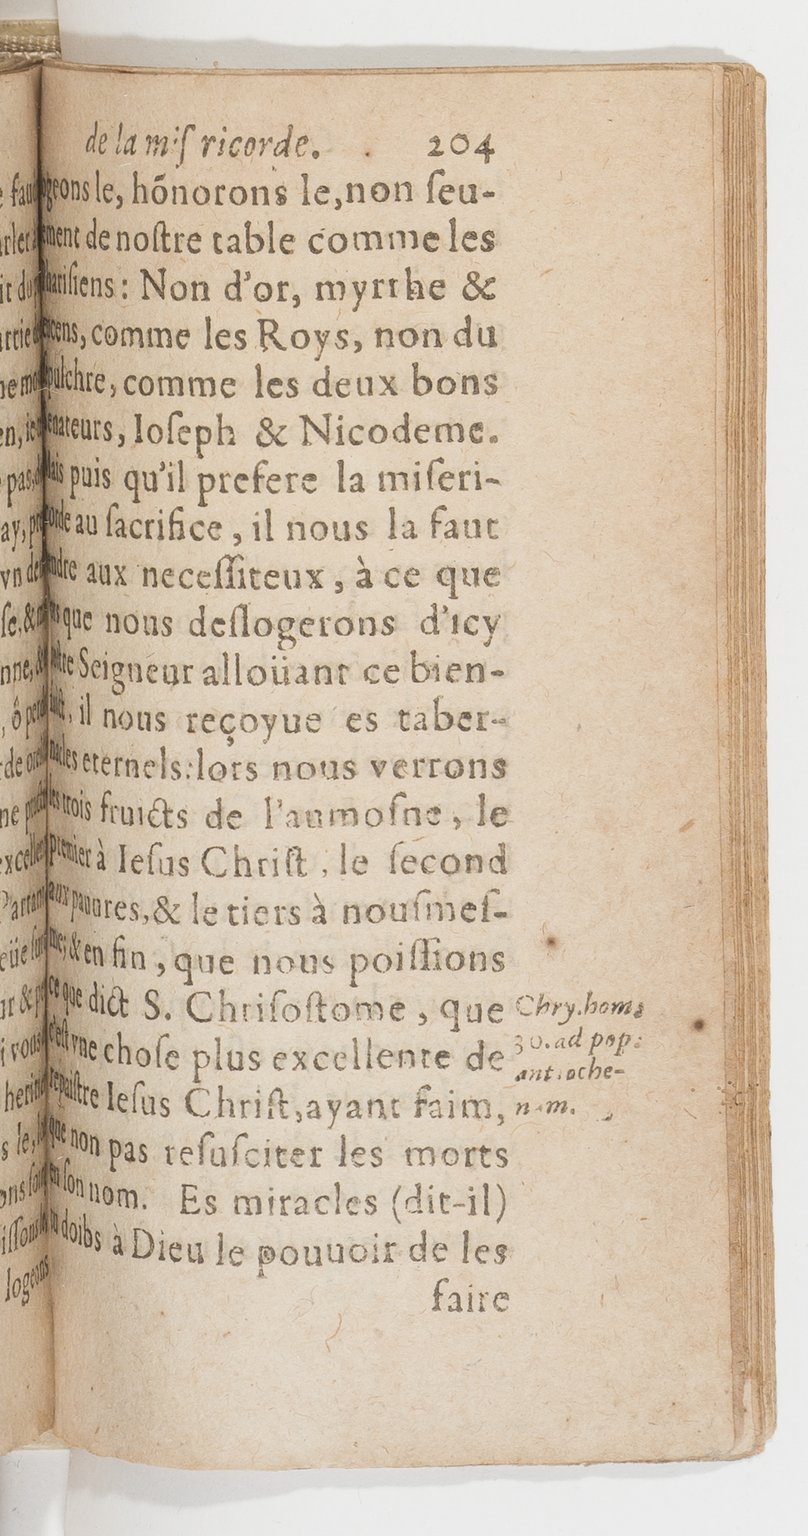 de la misericorde. 204
geons le, hõnorons le, non ſeu-
ment de noſtre table comme les
hariſiens : Non d'or, myrrhe &
cens, comme les Roys, non du
pulchre, comme les deux bons
nateurs, Ioſeph & Nicodeme.
ais puis qu'il prefere la miſeri-
orde au ſacrifice, il nous la faut
ndre aux neceſſiteux, à ce que
que nous deſlogerons d'icy
ſtre Seigneur alloüant ce bien-
il nous reçoyue es taber-
les eternels: lors nous verrons
les trois fruicts de l'aumoſne, le
premier à Ieſus Chriſt, le ſecond
aux pauures, & le tiers à nouſmeſ-
& en fin, que nous poiſſions
ce que dict S. Chriſoſtome, que
c'eſt vne choſe plus excellente de
repaiſtre Ieſus Chriſt, ayant faim,
que non pas reſuſciter les morts
en ſon nom. Es miracles (dit-il)
doibs à Dieu le pouuoir de les
faire
Chry. hom.
30. ad pop:
ant. oche-
n.m.